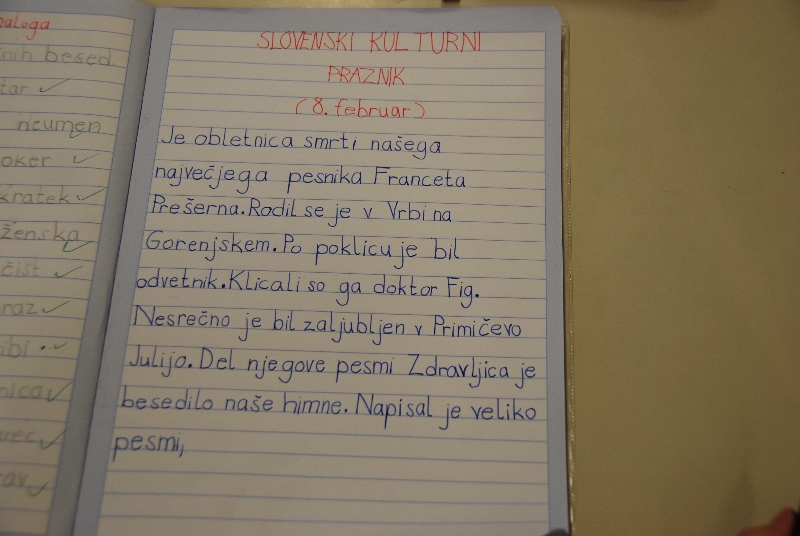 naloga
besed
tar
ncumen
oker
kratek
ženska
čist
raz
ibi
nica
rec
rav
SLOVENSKI KULTURNI
PRAZNIK
(8. februar)
Je obletnica smrti našega
največjega pesnika Franceta
Prešerna. Rodil se je v Vrbi na
Gorenjskem. Po poklicu je bil
odvetnik. Klicali so ga doktor Fig.
Nesrečno je bil zaljubljen v Primičevo
Julijo. Del njegove pesmi Zdravljica je
besedilo naše himne. Napisal je veliko
pesmi,